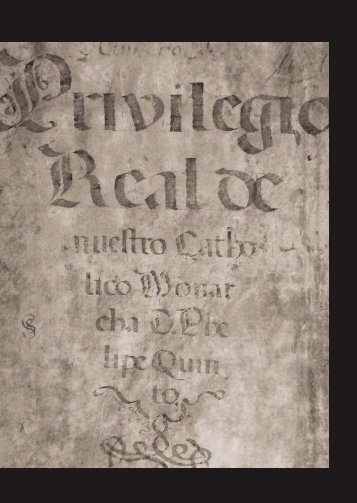 Privilegio
Real de
nuestro Catho
lico Monar
cha D. Phe
lipe Quin
to